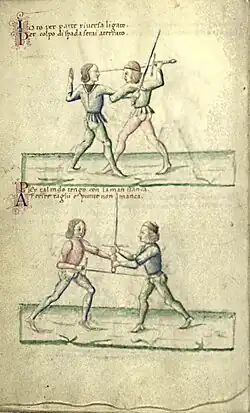 Io to per parte riversa ligato
Per colpo di spada serai atterato.
Per tal modo tengo con la man stanca
A ferire tagli e punte non manca.